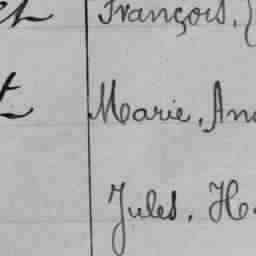 François,
Marie, An
Jules, He